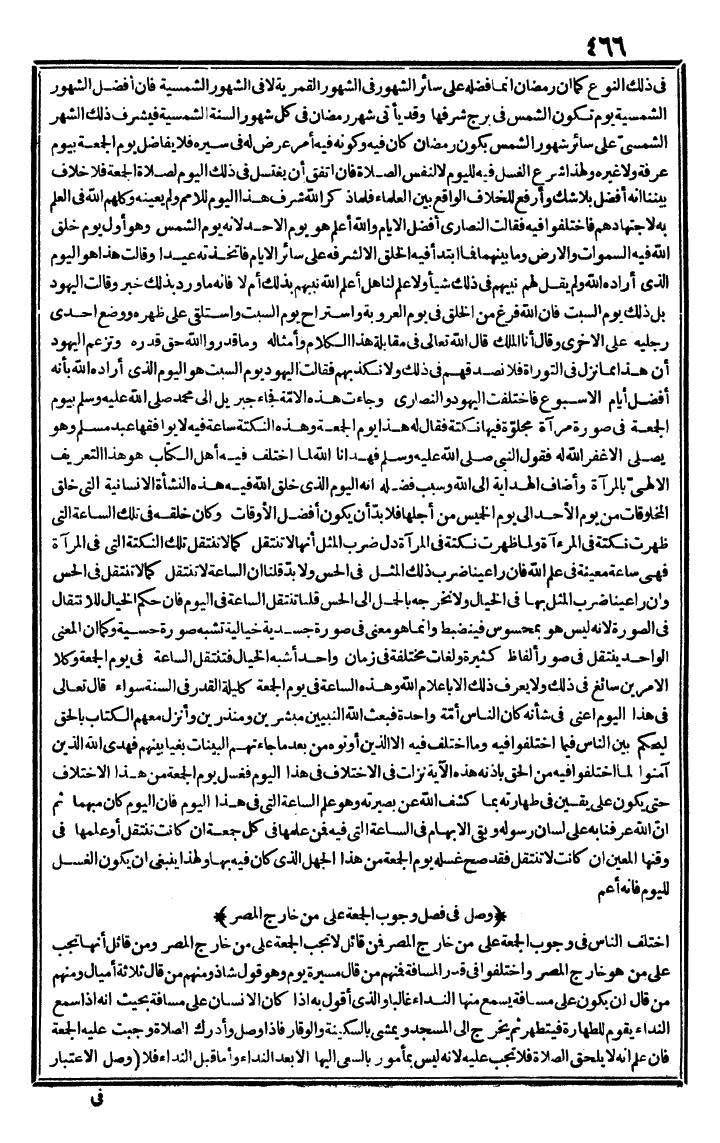 ٤٦٦
فى ذلك النوع كما ان رمضان انما فضله على سائر الشهور فى الشهور القمرية لا فى الشهور الشمسية فان أفضل الشهور
الشمسية يوم تكون الشمس فى برج شرفها وقد يأتى شهر رمضان فى كل شهور السنة الشمسية فيشرف ذلك الشهر
الشمسىّ على سائر شهور الشمس بكون رمضان كان فيه وكونه فيه أمر عرض له فى سيره فلا يفاضل يوم الجمعة بيوم
عرفة ولا غيره ولهذا شرع الغسل فيه لليوم لا لنفس الصلاة فان اتفق أن يغتسل فى ذلك اليوم لصلاة الجمعة فلا خلاف
بيننا انه أفضل بلا شك وأرفع للخلاف الواقع بين العلماء فلما ذكر الله شرف هذا اليوم للامم ولم يعينه وكلهم الله فى العلم
به لاجتهادهم فاختلفوا فيه فقالت النصارى أفضل الايام والله أعلم هو يوم الاحد لانه يوم الشمس وهو أول يوم خلق
الله فيه السموات والارض وما بينهما فما ابتدأ فيه الخلق الا لشرفه على سائر الايام فاتخذته عيدا وقالت هذا هو اليوم
الذى أراده الله ولم يقل لهم نبيهم فى ذلك شيأ ولا علم لنا هل أعلم الله نبيهم بذلك أم لا فانه ما ورد بذلك خبر وقالت اليهود
بل ذلك يوم السبت فان الله فرغ من الخلق فى يوم العروبة واستراح يوم السبت واستلقى على ظهره ووضع احدى
رجليه على الاخرى وقال أنا الملك قال الله تعالى فى مقابلة هذا الكلام وأمثاله وما قدروا الله حق قدره وتزعم اليهود
أن هذا مما نزل فى التوراة فلا نصدقهم فى ذلك ولا نكذبهم فقالت اليهود يوم السبت هو اليوم الذى أراده الله بأنه
أفضل أيام الاسبوع فاختلفت اليهود والنصارى وجاءت هذه الامّة فجاء جبريل الى محمد صلى الله عليه وسلم بيوم
الجمعة فى صورة مرآة مجلوّة فيها نكتة فقال له هذا يوم الجمعة وهذه النكتة ساعة فيه لا يوافقها عبد مسلم وهو
يصلى الا غفر الله له فقول النبى صلى الله عليه وسلم فهدانا الله لما اختلف فيه أهل الكتاب هو هذا التعريف
الالهىّ بالمرآة وأضاف الهداية الى الله وسبب فضله انه اليوم الذى خلق الله فيه هذه النشأة الانسانية التى خلق
المخلوقات من يوم الأحد الى يوم الخميس من أجلها فلا بدّ أن يكون أفضل الأوقات وكان خلقه فى تلك الساعة التى
ظهرت نكتة فى المرءآة ولما ظهرت نكتة فى المرآة دل ضرب المثل أنها لا تنتقل كما لا تنتقل تلك النكتة التى فى المرآة
فهى ساعة معينة فى علم الله فان راعينا ضرب ذلك المثل فى الحس ولا بدّ قلنا ان الساعة لا تنتقل كما لا تنتقل فى الحس
وان راعينا ضرب المثل بها فى الخيال ولا نخرجه بالحمل الى الحس قلنا تنتقل الساعة فى اليوم فان حكم الخيال للانتقال
فى الصورة لانه ليس هو بمحسوس فينضبط وانما هو معنى فى صورة جسدية خيالية تشبه صورة حسية وكما ان المعنى
الواحد ينتقل فى صور ألفاظ كثيرة ولغات مختلفة فى زمان واحد أشبه الخيال فتنتقل الساعة فى يوم الجمعة وكلا
الامرين سائغ فى ذلك ولا يعرف ذلك الا باعلام الله وهذه الساعة فى يوم الجمعة كليلة القدر فى السنة سواء قال تعالى
فى هذا اليوم اعنى فى شأنه كان الناس أمّة واحدة فبعث الله النبيين مبشرين ومنذرين وأنزل معهم الكتاب بالحق
ليحكم بين الناس فيما اختلفوا فيه وما اختلف فيه الا الذين أوتوه من بعد ما جاءتهم البينات بغيا بينهم فهدى الله الذين
آمنوا لما اختلفوا فيه من الحق باذنه هذه الآية نزلت فى الاختلاف فى هذا اليوم فغسل يوم الجمعة من هذا الاختلاف
حتى يكون على يقين فى طهارته بما كشف الله عن بصيرته وهو علم الساعة التى فى هذا اليوم فان اليوم كان مبهما ثم
انّ الله عرفنا به على لسان رسوله وبقى الابهام فى الساعة التى فيه فمن علمها فى كل جمعة ان كانت تنتقل أو علمها فى
وقتها المعين ان كانت لا تنتقل فقد صح غسله يوم الجمعة من هذا الجهل الذى كان فيه بها ولهذا ينبغى ان يكون الغسل
لليوم فانه أعم
﴿وصل فى فصل وجوب الجمعة على من خارج المصر﴾
اختلف الناس فى وجوب الجمعة على من خارج المصر فمن قائل لا تجب الجمعة على من خارج المصر ومن قائل أنها تجب
على من هو خارج المصر واختلفوا فى قدر المسافة فمنهم من قال مسيرة يوم وهو قول شاذ ومنهم من قال ثلاثة أميال ومنهم
من قال ان يكون على مسافة يسمع منها النداء غالبا والذى أقول به اذا كان الانسان على مسافة بحيث انه اذا سمع
النداء يقوم للطهارة فيتطهر ثم يخرج الى المسجد ويمشى بالسكينة والوقار فاذا وصل وأدرك الصلاة وجبت عليه الجمعة
فان علم انه لا يلحق الصلاة فلا تجب عليه لانه ليس بمأمور بالسعى اليها الا بعد النداء وأما قبل النداء فلا (وصل الاعتبار
فى